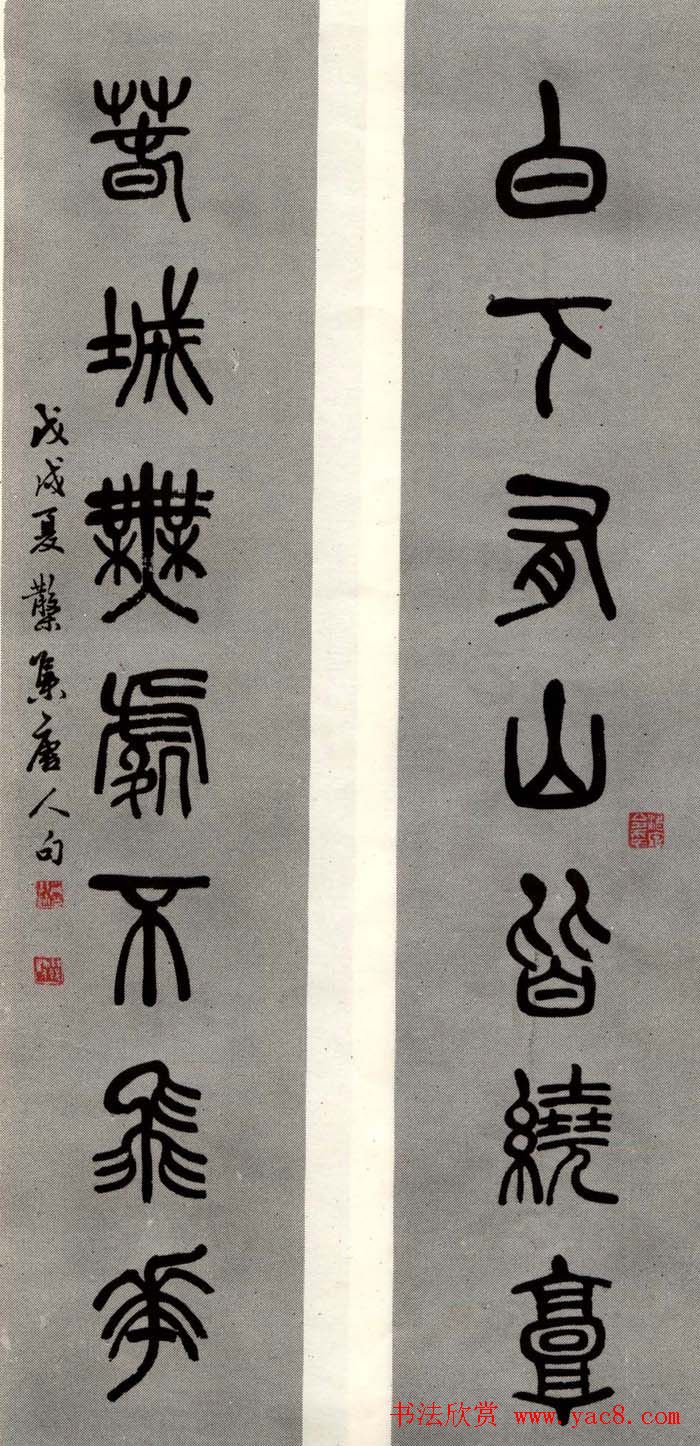 白下有山皆繞郭
春城無處不飛華
戊戌夏散木集唐人句
书法欣赏 www.yac8.com